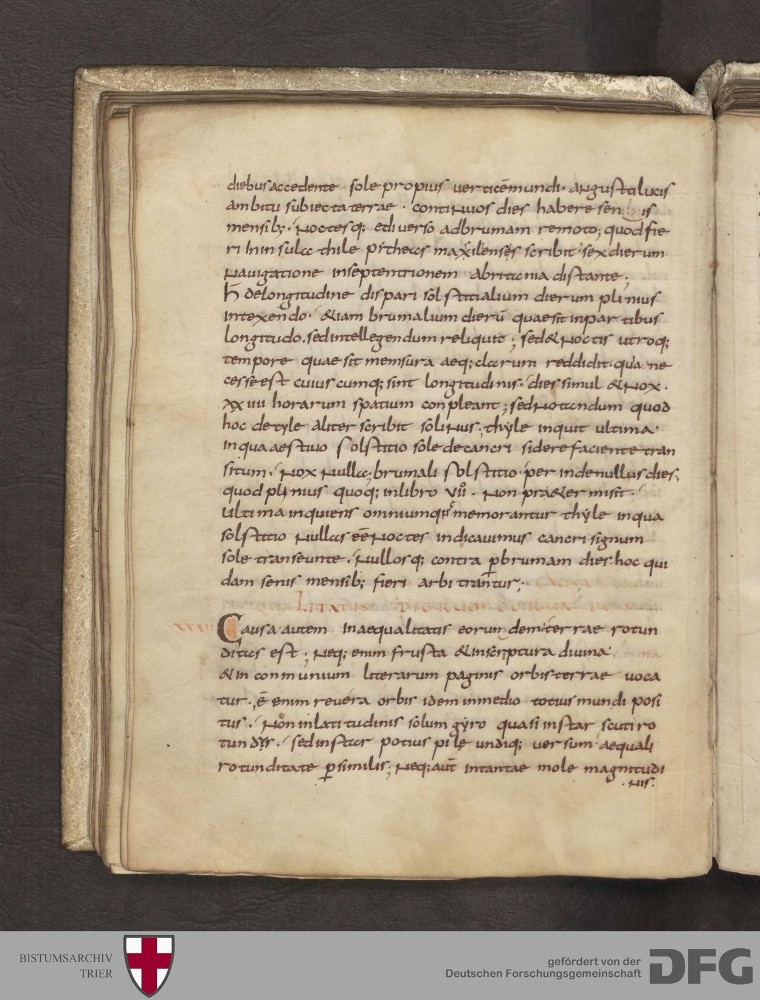 diebus accedente sole propius verticē mundi · angusti lucis
ambitu subiecta terrae · continuos dies habere senis
mensib; · Noctesq; ediverso ad brumam remoto; quod fie
ri in insula thile pitheas maxilenses scribit sex dierum
navigatione in septentrionem a brittania distante;
de longitudine dispari solstitialium dierum plinius
intexendo · &iam brumalium dierū quae sit in partibus
longitudo. sed intellegendum reliquit; sed & Noctis utroq;
tempore quae sit mensura aeq; clarum reddidit · quia ne
cesse est cuiuscumq; sint longitudinis · dies simul & Nox ·
xxiiii horarum spatium conpleant; sed Notandum quod
hoc de tyle aliter scribit solinus; thyle inquit ultima ·
in qua aestivo solstitio sole de cancri sidere faciente tran
situm · Nox Nulla; brumali solstitio · perinde nullus dies;
quod plinius quoq; in libro vii° · Non pra&ermisit ·
ultima inquiens omnium quę memorantur thyle in qua
solstitio Nullas eē Noctes indicavimus cancri signum
sole transeunte · Nullosq; contra p brumam dies · hoc qui
dam senis mensib; fieri arbitrantur;
LITATIS DIERUM EORUM
Causa autem inaequalitatis eorundem · terrae rotun
ditas est; Neq; enim frustra & in scriptura divina ·
& in communium literarum paginis orbis terrae voca
tur · ē enim revera orbis idem in medio totius mundi posi
tus · Non in latitudinis solum gyro quasi instar scuti ro
tundus · sed instar potius pile undiq; versum aequali
rotunditate psimilis; Neq; aut in tantae mole magnitudi
· Nis ·
BISTUMSARCHIV
TRIER
gefördert von der
Deutschen Forschungsgemeinschaft
DFG